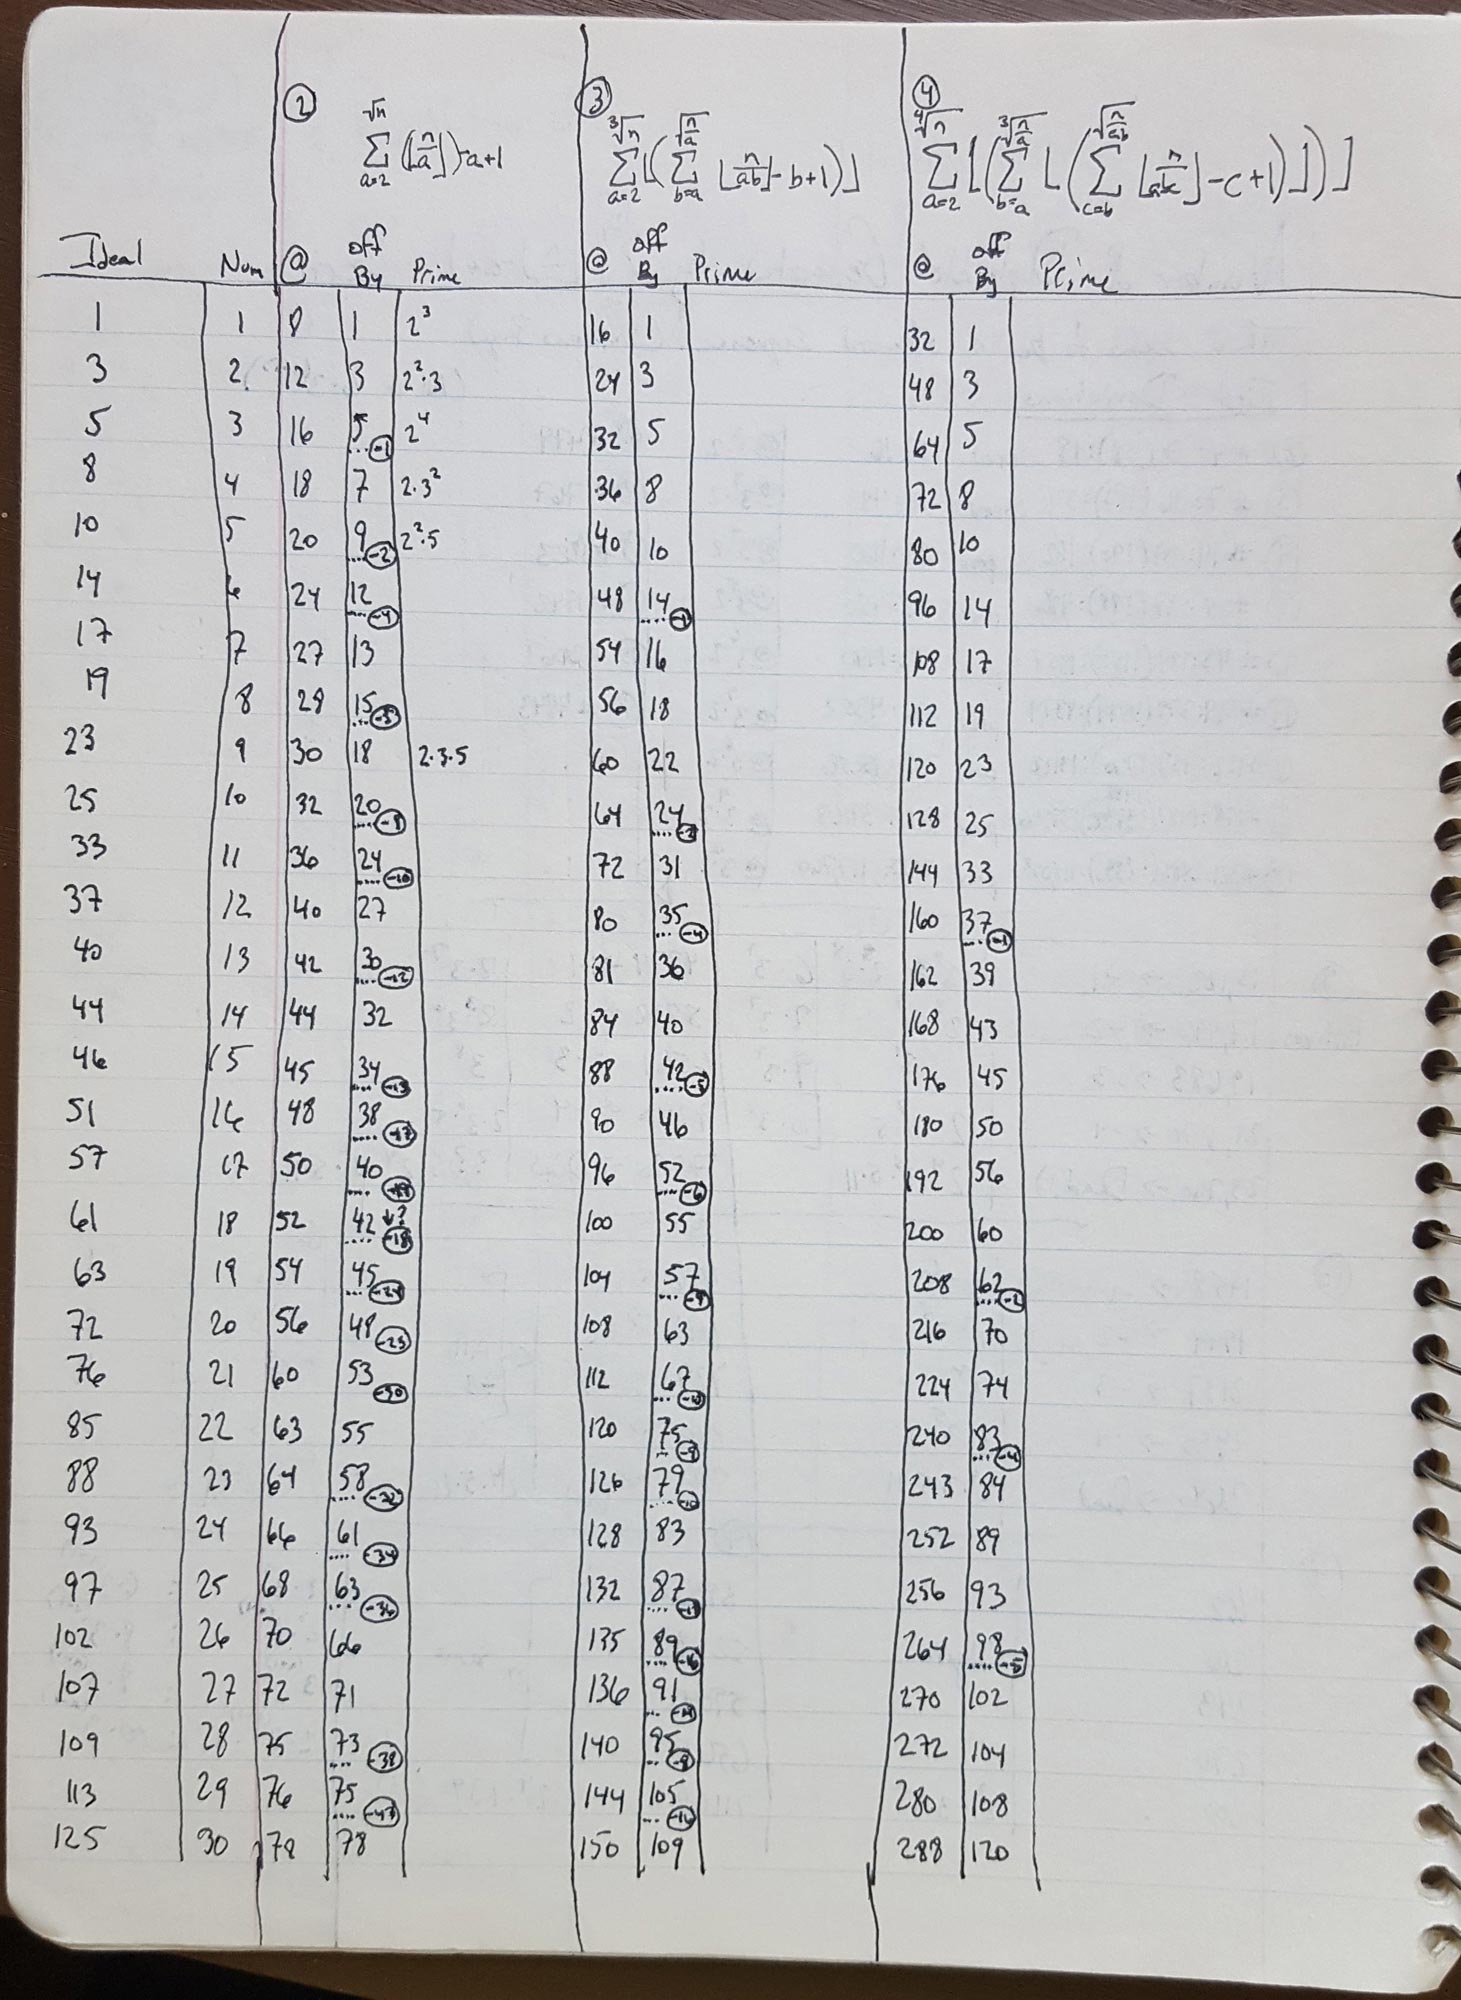 ② ③ ④
√n ∑ a=2 (⌊n/a⌋)-a+1 ∛n ∑ a=2 ⌊(√(n/a) ∑ b=a ⌊n/ab⌋-b+1)⌋ ∜n ∑ a=2 ⌊(∛(n/a) ∑ b=a ⌊(√(n/ab) ∑ c=b ⌊n/abc⌋-c+1)⌋)⌋
Ideal Num @ off By Prime @ off By Prime @ off By Prime
1 1 8 1 2³ 16 1 32 1
3 2 12 3 2²·3 24 3 48 3
5 3 16 5 -1 2⁴ 32 5 64 5
8 4 18 7 2·3² 36 8 72 8
10 5 20 9 -2 2²·5 40 10 80 10
14 6 24 12 -4 48 14 -1 96 14
17 7 27 13 54 16 108 17
19 8 28 15 -5 56 18 112 19
23 9 30 18 2·3·5 60 22 120 23
25 10 32 20 -8 64 24 -2 128 25
33 11 36 24 -10 72 31 144 33
37 12 40 27 80 35 -4 160 37 -1
40 13 42 30 -12 81 36 162 39
44 14 44 32 84 40 168 43
46 15 45 34 -13 88 42 -5 176 45
51 16 48 38 -17 90 46 180 50
57 17 50 40 -19 96 52 -6 192 56
61 18 52 42 ↓? -18 100 55 200 60
63 19 54 45 104 57 208 62 -2
72 20 56 48 -23 108 63 216 70
76 21 60 53 -30 112 67 224 74
85 22 63 55 120 75 -9 240 83 -4
88 23 64 58 -32 126 79 -10 243 84
93 24 66 61 -34 128 83 252 89
97 25 68 63 -36 132 87 256 93
102 26 70 66 135 89 264 98 -5
107 27 72 71 136 91 270 102
109 28 75 73 -38 140 95 272 104
113 29 76 75 -47 144 105 280 108
125 30 78 78 150 109 288 120